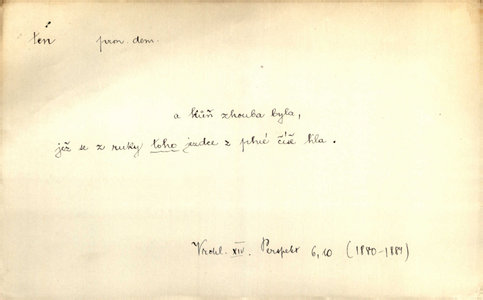 ten pron. dem.
a kůň zhouba byla,
jež se z ruky toho jezdce z plné číše lila.
Vrchl. XIV. Perspekt 6, 10 (1880-1884)